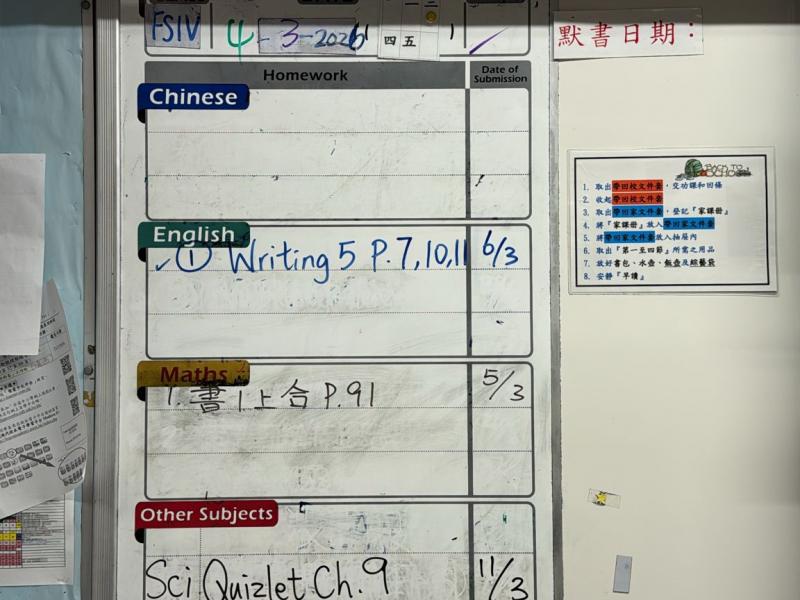 FSIV 4-3-2026
四 五
默書日期：
Homework
Date of Submission
Chinese
English
① Writing 5 P.7,10,11 6/3
Maths
1. 書1上合 P.91 5/3
Other Subjects
Sci Quizlet Ch.9 11/3
BACK TO SCHOOL
1. 取出帶回校文件套，交功課和回條
2. 收起帶回校文件套
3. 取出帶回家文件套，登記『家課冊』
4. 將『家課冊』放入帶回家文件套
5. 將帶回家文件套放入抽屜內
6. 取出『第一至四節』所需之用品
7. 放好書包、水壺、飯壺及綜藝袋
8. 安靜『早讀』